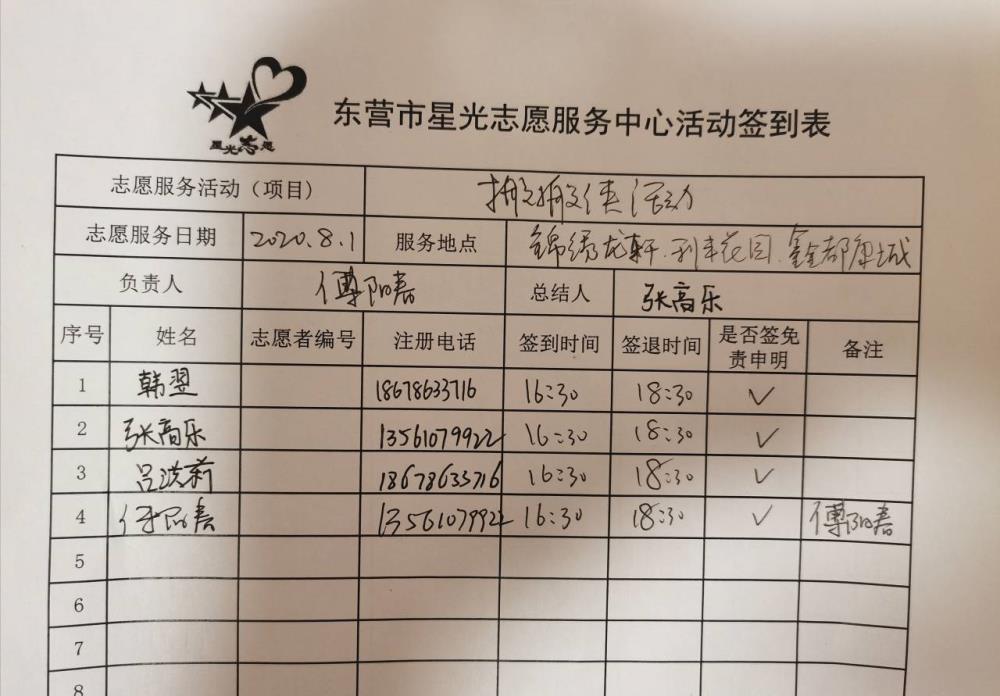 星光志愿
东营市星光志愿服务中心活动签到表
志愿服务活动（项目） 搬搬侠活动
志愿服务日期 2020.8.1 服务地点 锦绣龙轩.利丰花园.鑫都康城
负责人 傅阳春 总结人 张高乐
序号 姓名 志愿者编号 注册电话 签到时间 签退时间 是否签免责申明 备注
1 韩翌 18678633716 16:30 18:30 ✓
2 张高乐 13561079922 16:30 18:30 ✓
3 吕洪莉 18678633716 16:30 18:30 ✓
4 13561079922 16:30 18:30 ✓ 傅阳春
5
6
7
8